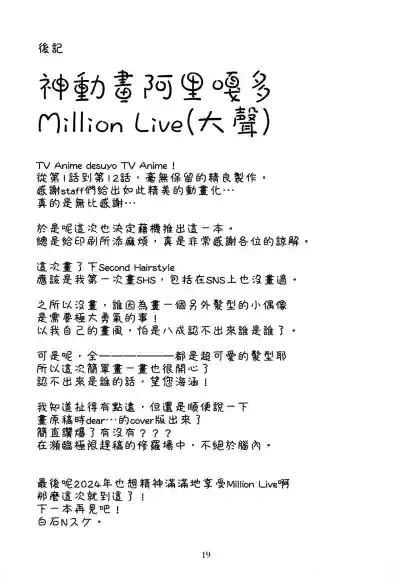 後記
神動畫阿里嘎多
Million Live(大聲)
TV Anime desuyo TV Anime！
從第1話到第12話，毫無保留的精良製作，
感謝staff們給出如此精美的動畫化…
真的是無比感謝…
於是呢這次也決定藉機推出這一本。
總是給印刷所添麻煩，真是非常感謝各位的諒解。
這次畫了下Second Hairstyle
應該是我第一次畫SHS，包括在SNS上也沒畫過。
之所以沒畫，誰因為畫一個另外髮型的小偶像
是需要極大勇氣的事！
以我自己的畫風，怕是八成認不出來誰是誰了。
可是呢，全——————都是超可愛的髮型耶
所以這次簡單畫一畫也很開心了
認不出來是誰的話，望您海涵！
我知道扯得有點遠，但還是順便說一下
畫原稿時dear…的cover版出來了
簡直讚爆了有沒有？？？
在瀕臨極限趕稿的修羅場中，不絕於腦內。
最後呢2024年也想精神滿滿地享受Million Live啊
那麼這次就到這了！
下一本再見吧！
白石Nスケ。
19